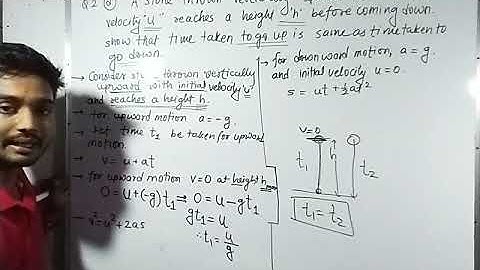 Q2 @ A stone thrown
velocity "u" reaches a height 'h' before coming down.
show that time taken to go up is same as time taken to
go down.
→ Consider thrown vertically
upward with initial velocity 'u'
and reaches a height h.
→ for upward motion a = -g.
→ let time t₁ be taken for upward
motion.
→ v = u + at
→ for upward motion v=0 at height h
0 = u + (-g)t₁ ⇒ 0 = u - gt₁
gt₁ = u
∴ t₁ = u/g
- v² = u² + 2as
→ for downward motion, a = g.
and initial velocity u = 0.
s = ut + ½at²
v=0
t₁
h
t₂
t₁ = t₂